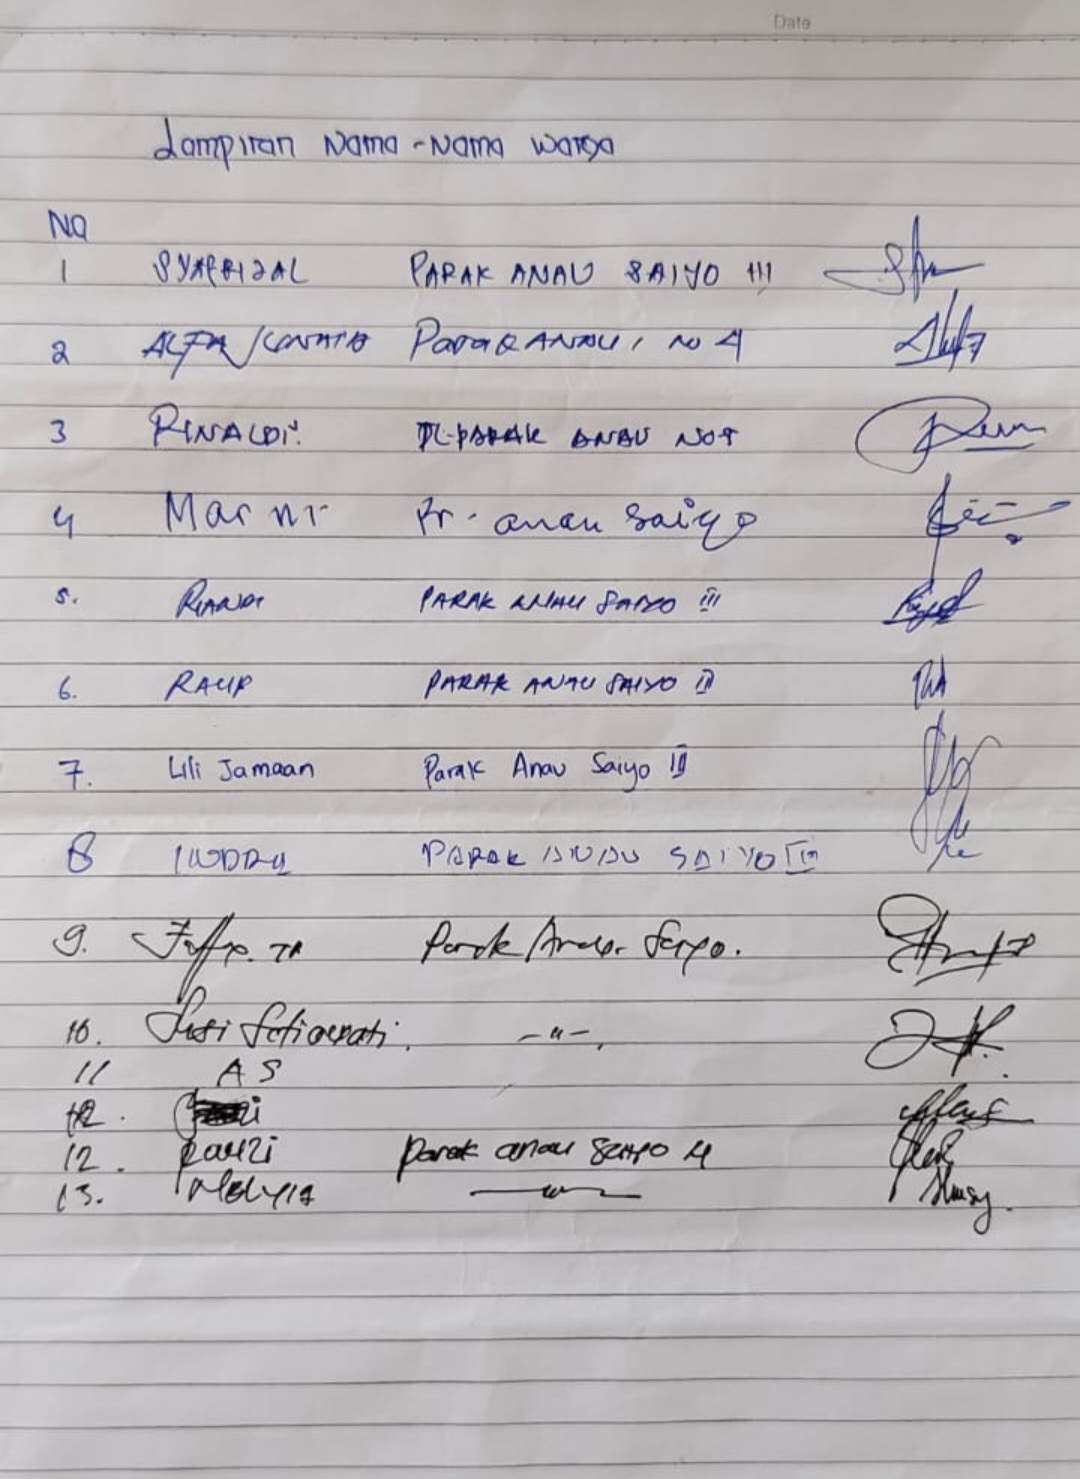 Date
Lampiran Nama-Nama Warga
NO
1 SYAFRIZAL PARAK ANAU SAIYO III
2 ALFA Parak ANAU, NO 4
3 RINALDI. JL. PARAK ANAU NO
4 Marni Pr. anau Saiyo
5. RIANDI PARAK ANAU SAIYO III
6. RAUF PARAK ANAU SAIYO II
7. Lili Jamaan Parak Anau Saiyo III
8 PARAK ANAU SAIYO III
9. Parak Anau Saiyo.
10. Susi Setiawati. -"-.
11 A S
12.
12. Fauzi Parak anau Saiyo 4
13. —"—